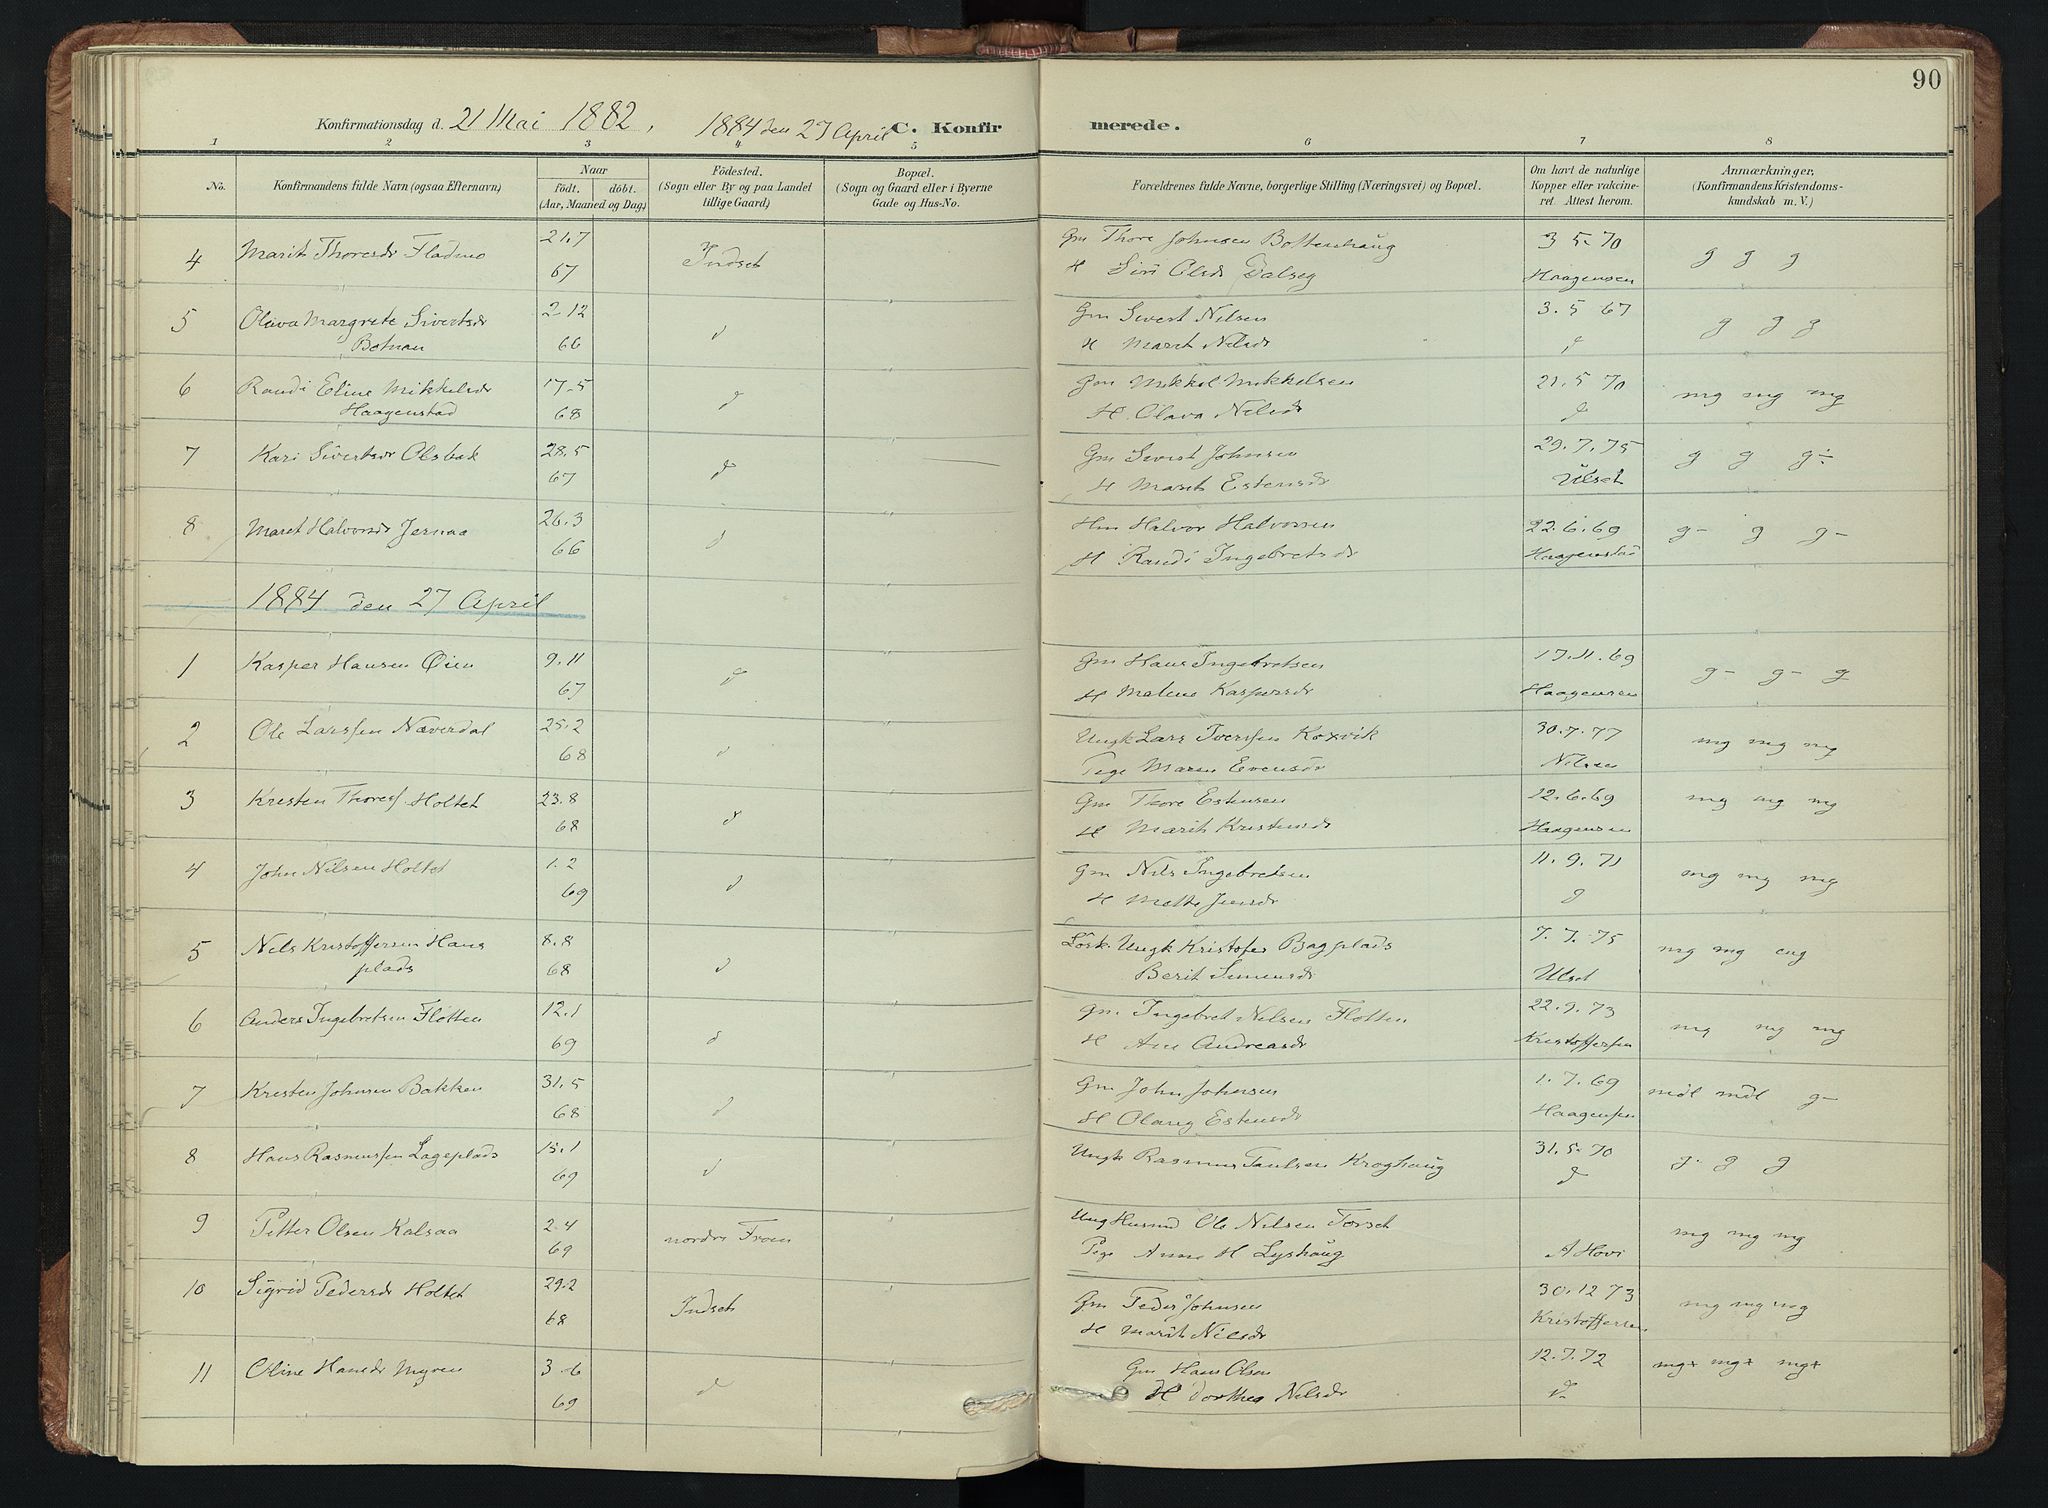 90
Konfirmationsdag d. 21 Mai 1882, 1884 den 27 April C. Konfirmerede.
1 2 3 4 5 6 7 8
No. Konfirmandens fulde Navn (ogsaa Efternavn) Naar födt. döbt. (Aar, Maaned og Dag) Födested. (Sogn eller By og paa Landet tillige Gaard) Bopæl. (Sogn og Gaard eller i Byerne Gade og Hus-No. Forældrenes fulde Navne, borgerlige Stilling (Næringsvei) og Bopæl. Om havt de naturlige Kopper eller vakcineret. Attest herom. Anmærkninger, (Konfirmandens Kristendomskundskab m. V.)
4 Marit Thoresdr Fladmo 21.7 Indset Gm Thore Johnsen Bottenhaug 3 5. 70 g g g
67 H Siri Olsdr Dalseg Haagensen
5 Olava Margrete Sivertsdr 2-12 d Gm Sivert Nilsen 3. 5 67 g g g
Botnan 66 H Marit Nilsdr d
6 Randi Eline Mikkelsdr 17-5 d Gm Mikkel Mikkelsen 21. 5 70 mg mg mg
Haagenstad 68 H. Olava Nilsdr d
7 Kari Sivertsdr Olsbak 28.5 d Gm Sivert Johnsen 29. 7. 75 g g g÷
67 H Marit Estensdr Ulset
8 Maret Halvorsdr Jernaa 26.3 d Hm Halvor Halvorsen 22. 6. 69 g- g g-
66 H Randi Ingebretsdr Haagenstad
1884 den 27 April
1 Kasper Hansen Øien 9.11 d Gm Hans Ingebretsen 17. 11. 69 g- g- g
67 H Malene Kaspersdr Haagensen
2 Ole Larssen Næverdal 25.2 d Ungk Lars Iverssen Koxvik 30. 7. 77 mg mg mg
68 Pige Maren Evensdr Nilsen
3 Kresten Thoress. Holtet 23.8 d Gm Thore Estensen 22. 6. 69 mg mg mg
68 H Marit Kristensdr Haagensen
4 John Nilsen Holtet 1. 2 d Gm Nils Ingebretsen 11. 9. 71 mg mg mg
69 H Mette Jensdr d
5 Nils Kristoffersen Hans 8.8 d Lösk. Ungk Kristofer Bagplads 7. 7. 75 mg mg mg
plads 68 Berit Simensdr Ulset
6 Anders Ingebretsen Flotten 12.1 d Gm. Ingebret Nilsen Flotten 22. 9. 73 mg mg mg
69 H Ane Andreasdr Kristoffersen
7 Kresten Johnsen Bakken 31. 5 d Gm John Johnsen 1. 7. 69 mdl mdl g-
68 H Olaug Estensdr Haagensen
8 Hans Rasmussen Lageplads 15.1 d Ungk Rasmus Paulsen Kroghaug 31. 5. 70 g- g g
69 d
9 Petter Olsen Kalsaa 2.4 nordre Fron Ung Husmd Ole Nilsen Torset mg mg mg
69 Pige Anne H Lyshaug A Hovi
10 Sigrid Pedersdr Holtet 29.2 Indset Gm Peder Johnsen 30. 12 73 mg mg mg
68 H Marit Nilsdr Kristoffersen
11 Oline Hansdr Myren 3.6 d Gm Hans Olsen 12. 7. 72 mg+ mg+ mg+
69 H Dorthea Nilsdr d